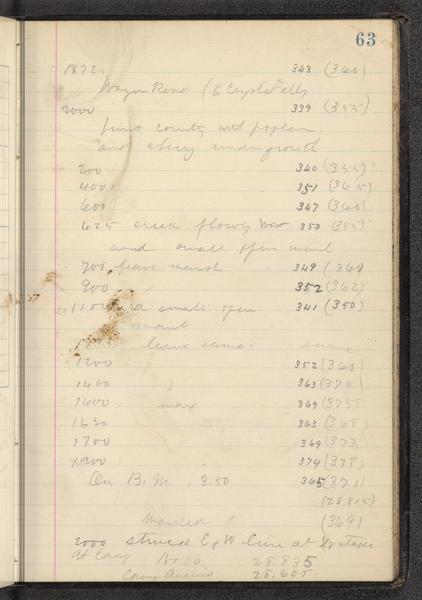 63
1872. 343 (360)
Wagon Road (to Crystal Falls
2000 339 (355)
pine country with poplar
and cherry undergrowth
200 340 (355)
400 351 (365)
600 347 (360)
625 creek flows West 353 (355)
and small open marsh
701 leave marsh 349 (360)
900 352 (362)
1100 a small open 341 (350)
marsh
leave same. same
1200 352 (360)
1400 363 (370)
1600 369 (375)
1630 363 (368)
1700 369 (373)
1900 374 (378)
On B.M. 3.50 365 (370)
(28.815)
(369)
2000 struck E & W line at 1/8 stake
At Camp No 10 28.835
Camp Aneroid 28.605